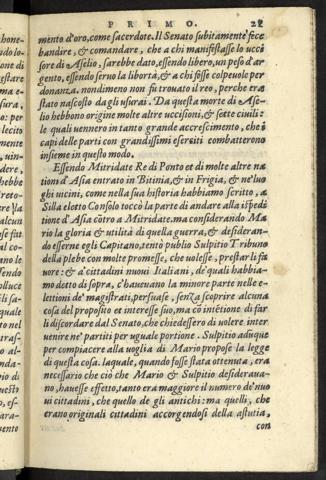 PRIMO. 21
mento d'oro, come sacerdote. Il Senato subitamẽte fece
bandire, & comandare, che a chi manifestasse lo ucci
sore di Aselio, sarebbe dato, essendo libero, un peso d'ar
gento, essendo seruo la libertà, & a chi fosse colpeuole per
donanza. nondimeno non fu trouato il reo, perche era
stato nascosto dagli usurai. Da questa morte di Ase-
lio hebbono origine molte altre uccisioni, & sette ciuili:
le quali uennero in tanto grande accrescimento, che i
capi delle parti con grandissimi eserciti combatterono
insieme in questo modo.
Essendo Mitridate Re di Ponto et di molte altre na
tioni d'Asia entrato in Bitinia, & in Frigia, & ne'luo
ghi uicini, come nella sua historia habbiamo scritto, a
Silla eletto Consolo toccò la parte di andare alla ispedi
tione d'Asia cõtro a Mitridate. ma considerando Ma
rio la gloria & utilità di quella guerra, & desideran-
do esserne egli Capitano, tentò publio Sulpitio Tribuno
della plebe con molte promesse, che uolesse, prestar li fa
uore: & a'cittadini nuoui Italiani, de'quali habbia-
mo detto di sopra, c'haueuano la minore parte nelle e-
lettioni de'magistrati, persuase, senza scoprire alcuna
cosa del proposito et interesse suo, ma cõ intẽtione di far
li discordare dal Senato, che chiedessero di uolere inter
uenire ne'partiti per uguale portione. Sulpitio aduque
per compiacere alla uoglia di Mario propose la legge
di questa cosa. laquale, quando fosse stata ottenuta, era
necessario che ciò che Mario & Sulpitio desideraua-
no, hauesse effetto, tanto era maggiore il numero de'nuo
ui cittadini, che quello de gli antichi: ma quelli, che
erano originali cittadini accorgendosi della astutia,
con